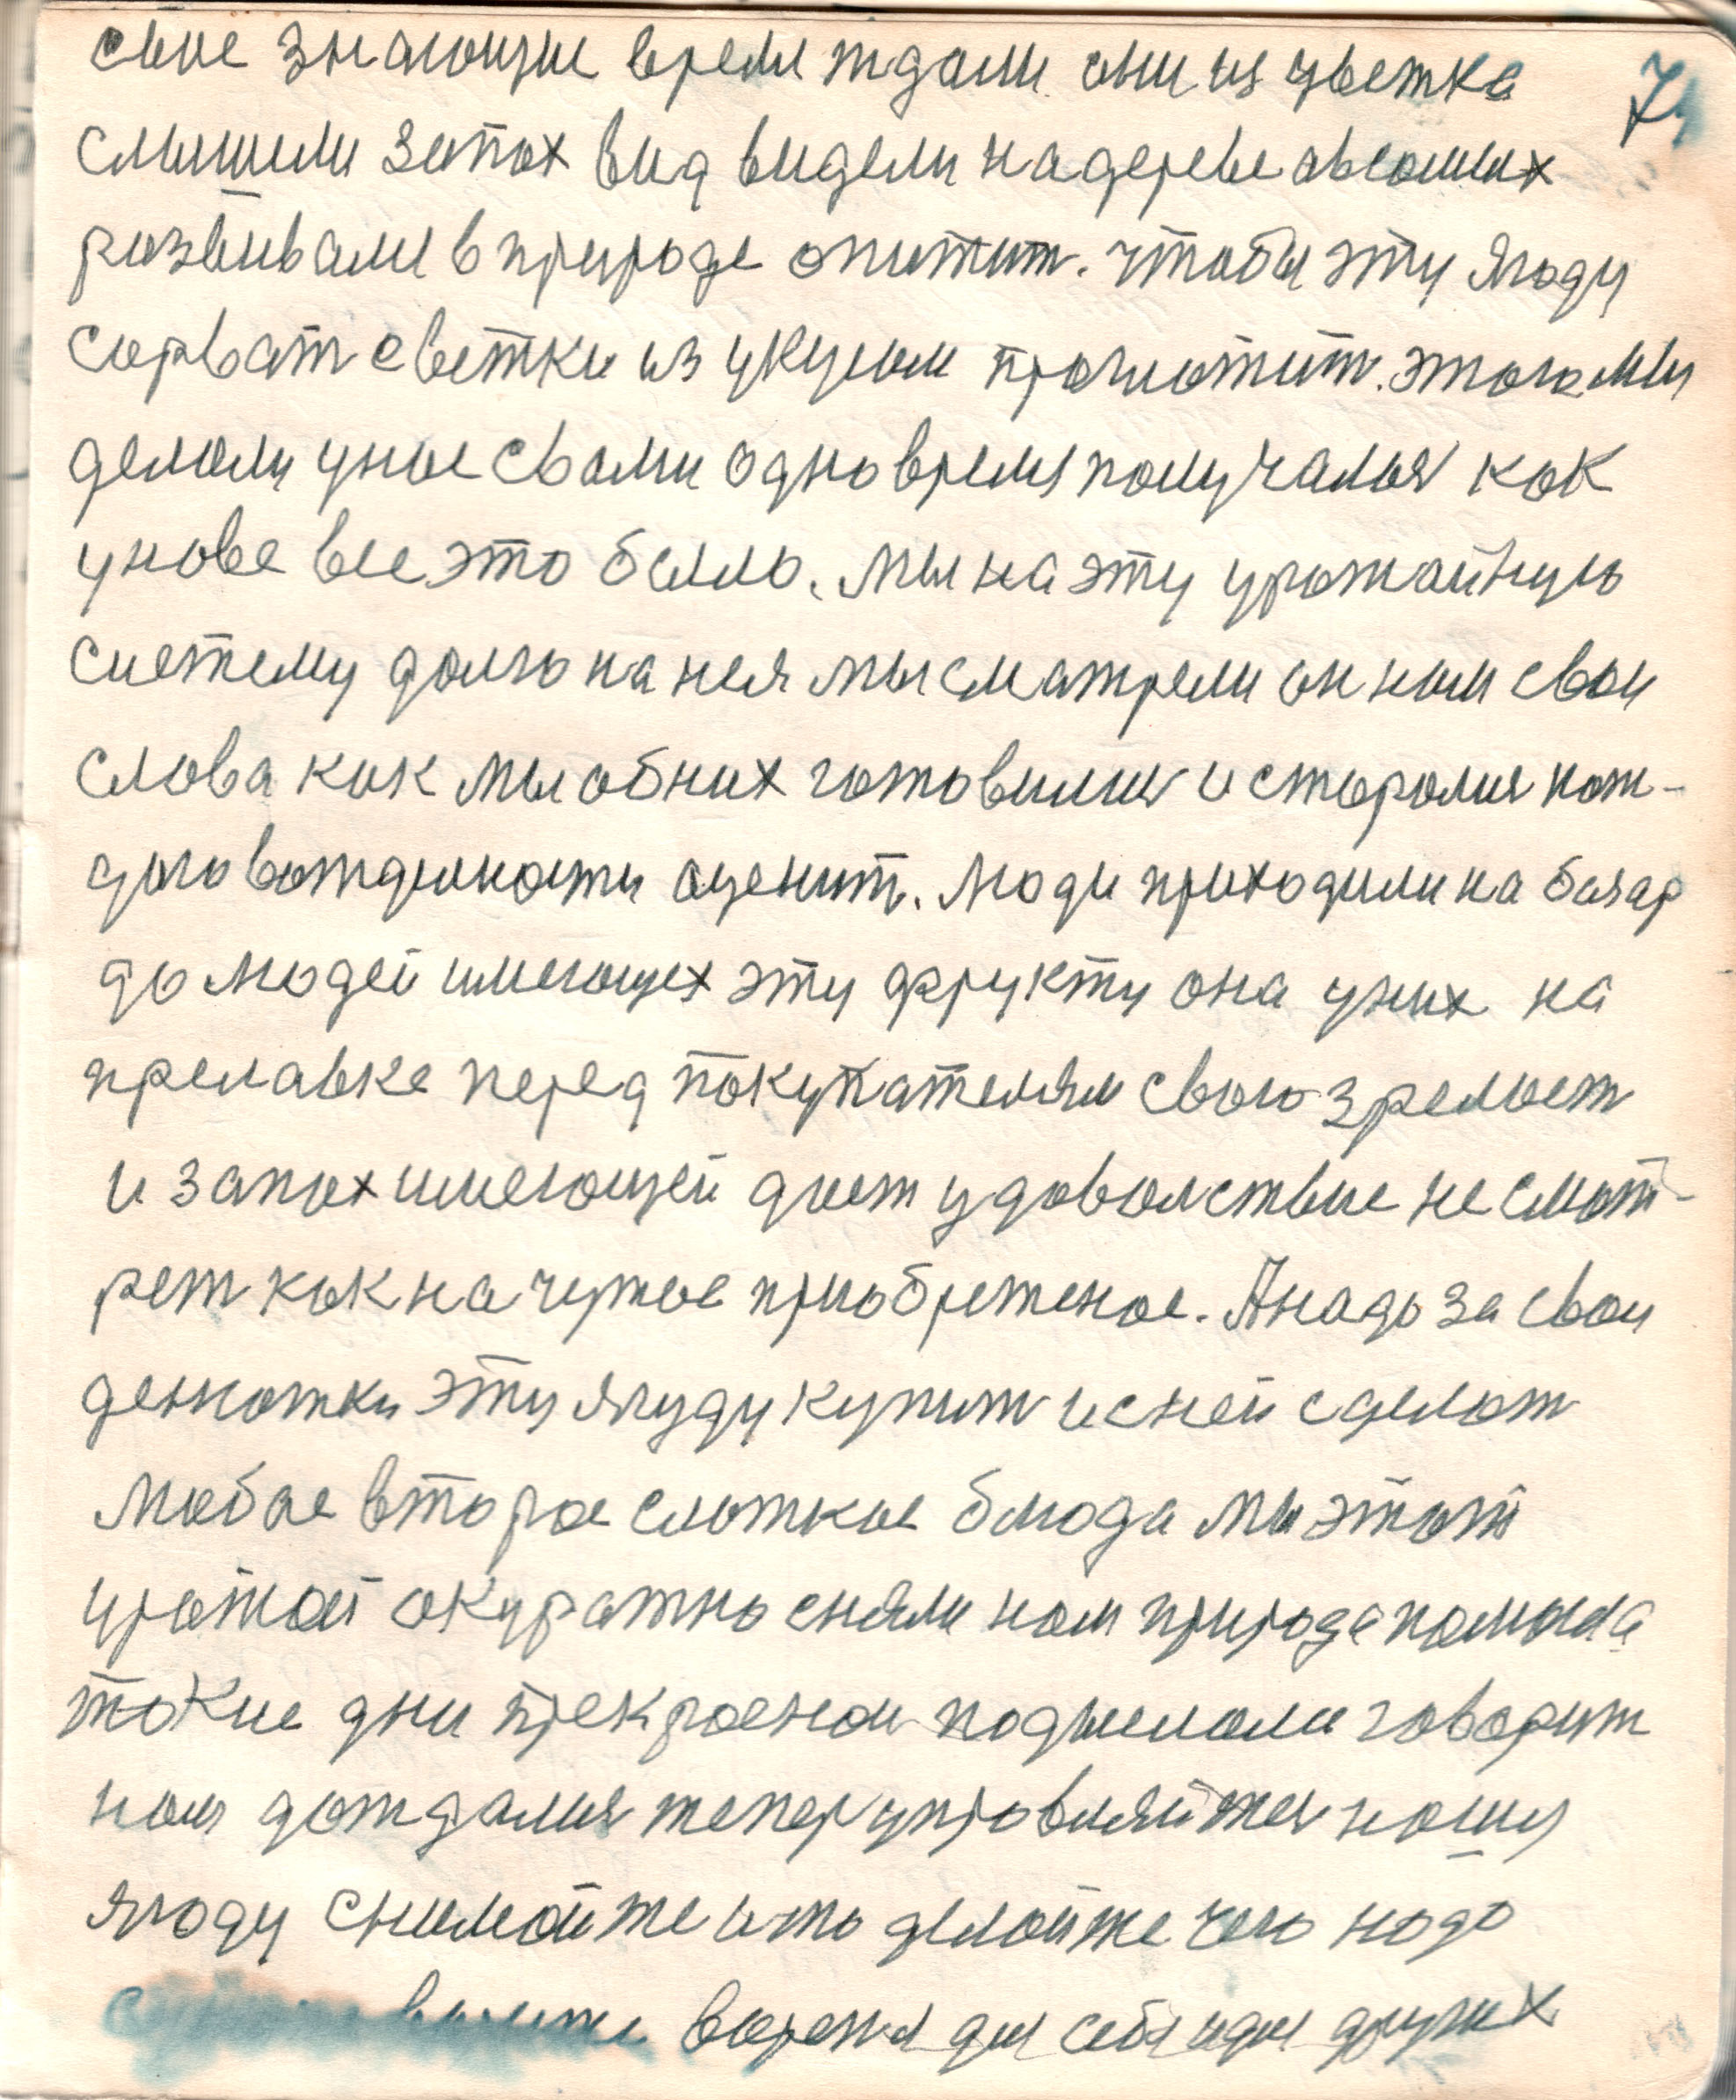 свое знающие время ждали они из цветка
74
слышели запах вид видели на дереве
развивали в природе опитит. чтобы эту ягоду
сорват с ветки из укусом проглотит. этога мы
делали унас свами одно время получался как
унове все это было. мы на эту урожайную
систему долго на нея мы сматрели он нам свои
слова как мы обних готовилися и старалися каж-
дого вотделности оценит. Люди приходили на базар
до людей имеющех эту фрукту она уних на
прелавке перед покупателям свою зрелост
и запах имеющей дает удоволствие не смот-
рет как на чужое приобретеное. А надо за свои
денюжки эту ягуду купит и сней сделат
любое второе слоткое блюда мы этот
урожай окуратно сняли нам природа помогла
такие дни прекрасной подыскала говорит
нам дождалися тепер управляйтеся нашу
ягоду снимайте и то делайте чего надо
варення для себя и для других